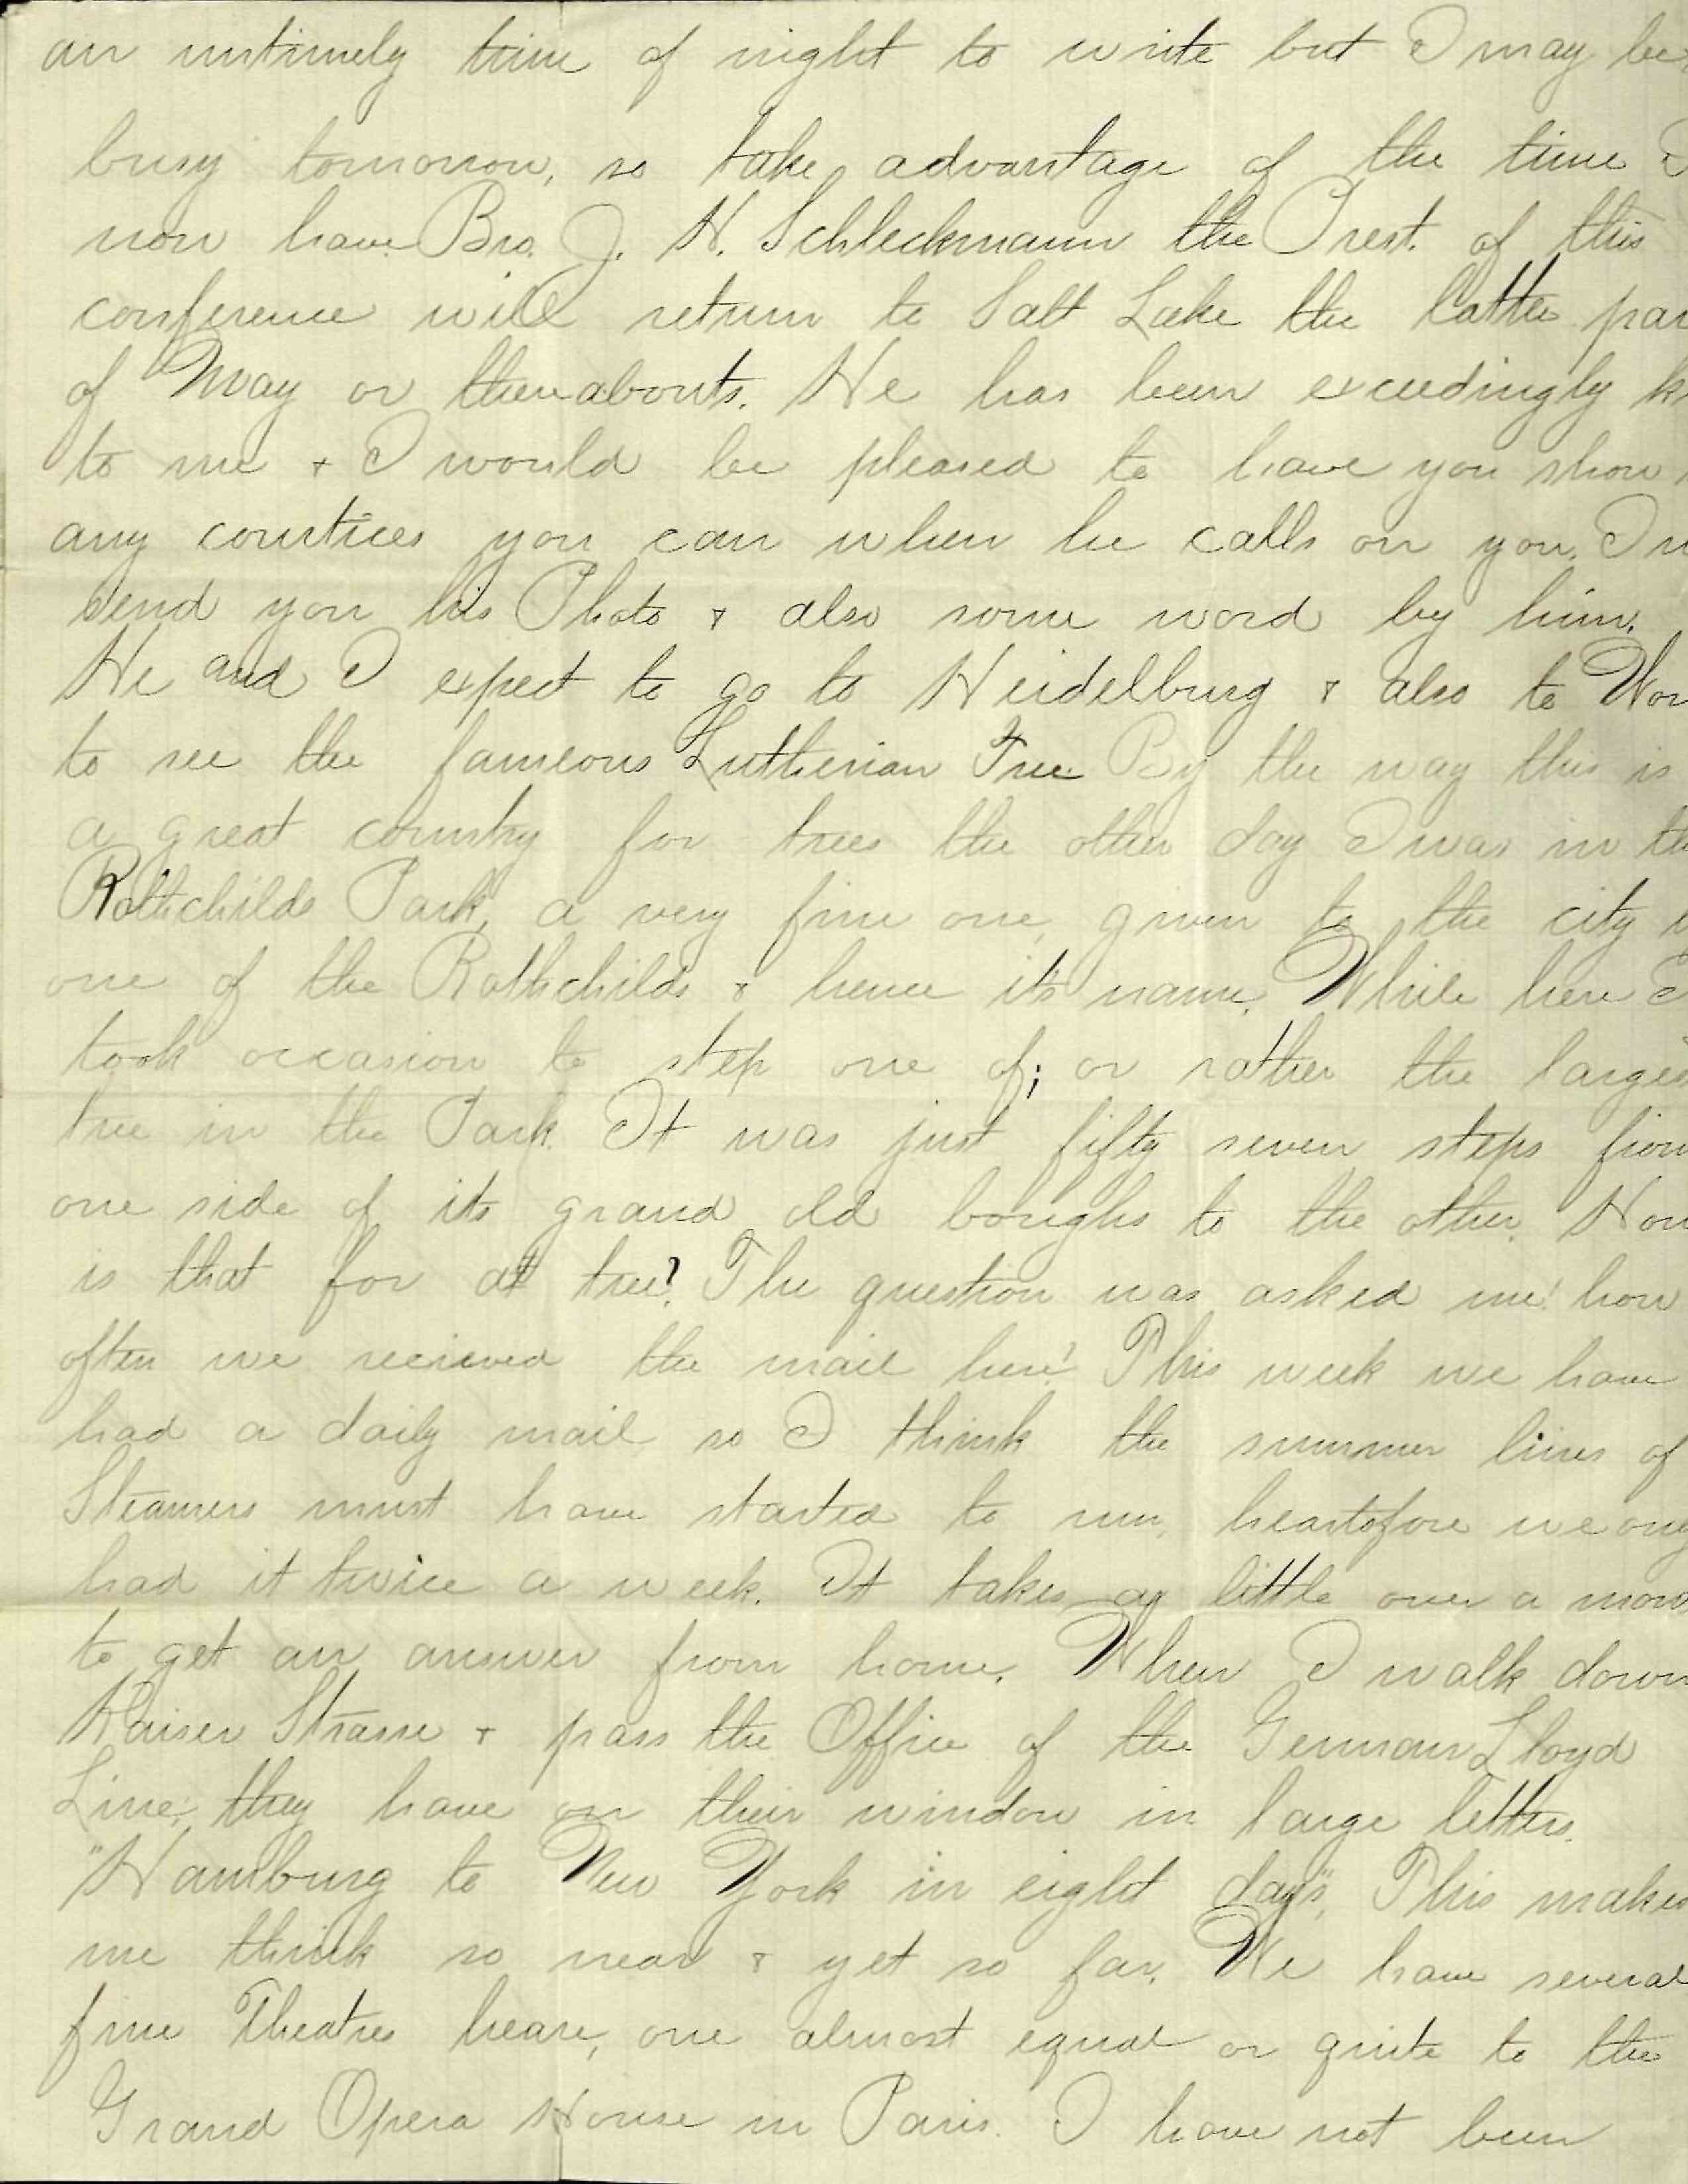 an untimely time of night to write but I may be
busy tomorrow, so take advantage of the time I
now have. Bro. J. H. Schleckmann the Prest. of this
conference will return to Salt Lake the latter par
of May or thereabouts. He has been exceedingly k
to me + I would be pleased to have you show
any courtices you can when he calls on you. I
send you his Photo & also some word by him.
He and I expect to go to Heidelburg & also to Wor
to see the fameous Lutherian Tree By the way this is
a great country for trees the other day I was in the
Rothchilds Park, a very fine one, given to the city
one of the Rothchilds & hence it's name. While here I
took occasion to step one of; or rather the larges
tree in the Park. It was just fifty seven steps from
one side of its grand old boughs to the other. How
is that for at tree? The question was asked me! how
often we recieved the mail here? This week we have
had a daily mail so I think the summer lines of
Steamers must have started to run, heartofore we ony
had it twice a week. It takes a little over a mon
to get an answer from home. When I walk down
Kaiser Strasse + pass the Office of the German Lloyd
Line, they have on their window in large letters.
"Hamburg to New York in eight days", This makes
me think so near & yet so far. We have several
fine Theatres heare, one almost equal or quite to the
Grand Opera House in Paris. I have not been